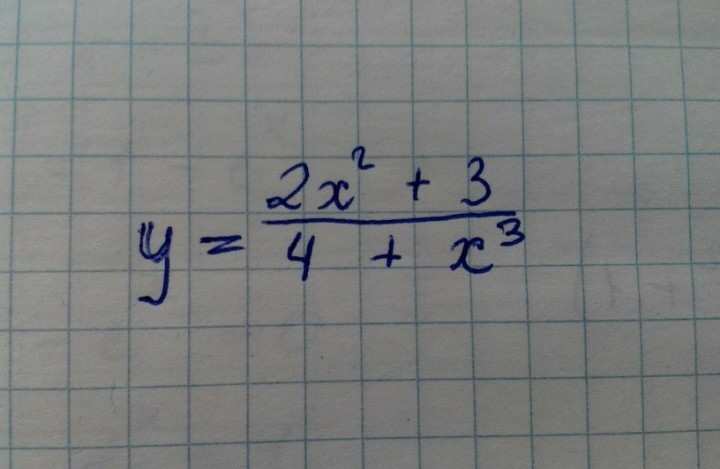 y = (2x² + 3) / (4 + x³)